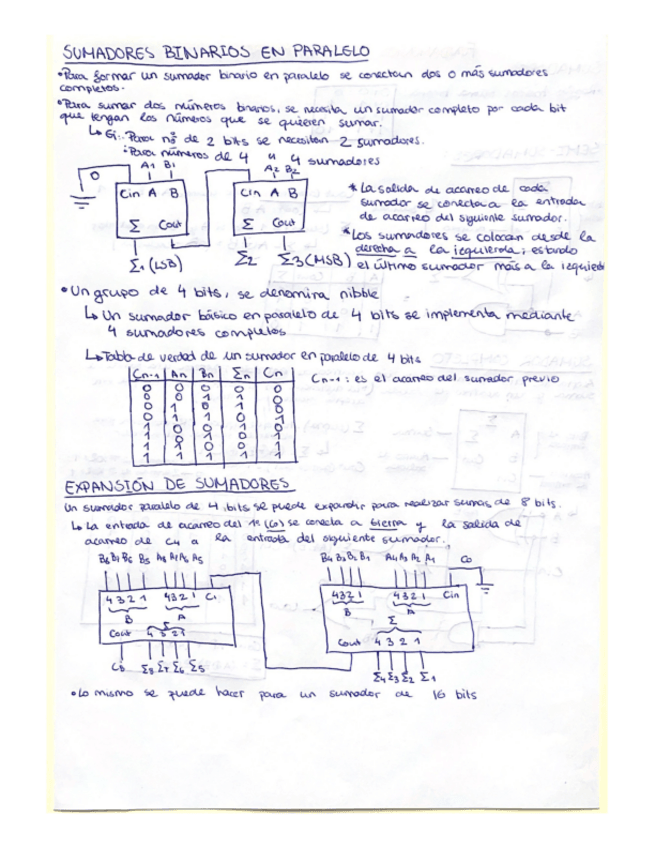 SUMADORES BINARIOS EN PARALELO
• Para formar un sumador binario en paralelo se conectan dos o más sumadores
completos.
• Para sumar dos números binarios, se necesita un sumador completo por cada bit
que tengan los números que se quieren sumar.
↳ Ej: Para nº de 2 bits se necesitan 2 sumadores.
• Para números de 4 " 4 sumadores
0 A1 B1 A2 B2
Cin A B Cin A B
Σ Cout Σ Cout
Σ1 (LSB) Σ2 Σ3 (MSB)
* La salida de acarreo de cada
sumador se conecta a la entrada
de acarreo del siguiente sumador.
* Los sumadores se colocan desde la
derecha a la izquierda; estando
el último sumador más a la izquierd
• Un grupo de 4 bits, se denomina nibble
↳ Un sumador básico en paralelo de 4 bits se implementa mediante
4 sumadores completos
↳ Tabla de verdad de un sumador en paralelo de 4 bits
Cn-1 An Bn Σn Cn
0 0 0 0 0
0 0 1 1 0
0 1 0 1 0
0 1 1 0 1
1 0 0 1 0
1 0 1 0 1
1 1 0 0 1
1 1 1 1 1
Cn-1: es el acarreo del sumador previo
EXPANSIÓN DE SUMADORES
Un sumador paralelo de 4 bits se puede expandir para realizar sumas de 8 bits.
↳ La entrada de acarreo del (C0) se conecta a tierra y la salida de
acarreo de C4 a la entrada del siguiente sumador.
B8 B7 B6 B5 A8 A7 A6 A5 B4 B3 B2 B1 A4 A3 A2 A1 C0
4 3 2 1 4 3 2 1 Ci 4 3 2 1 4 3 2 1 Cin
B A B A
Σ Σ
Cout 4 3 2 1 Cout 4 3 2 1
C8 Σ8 Σ7 Σ6 Σ5 Σ4 Σ3 Σ2 Σ1
• Lo mismo se puede hacer para un sumador de 16 bits